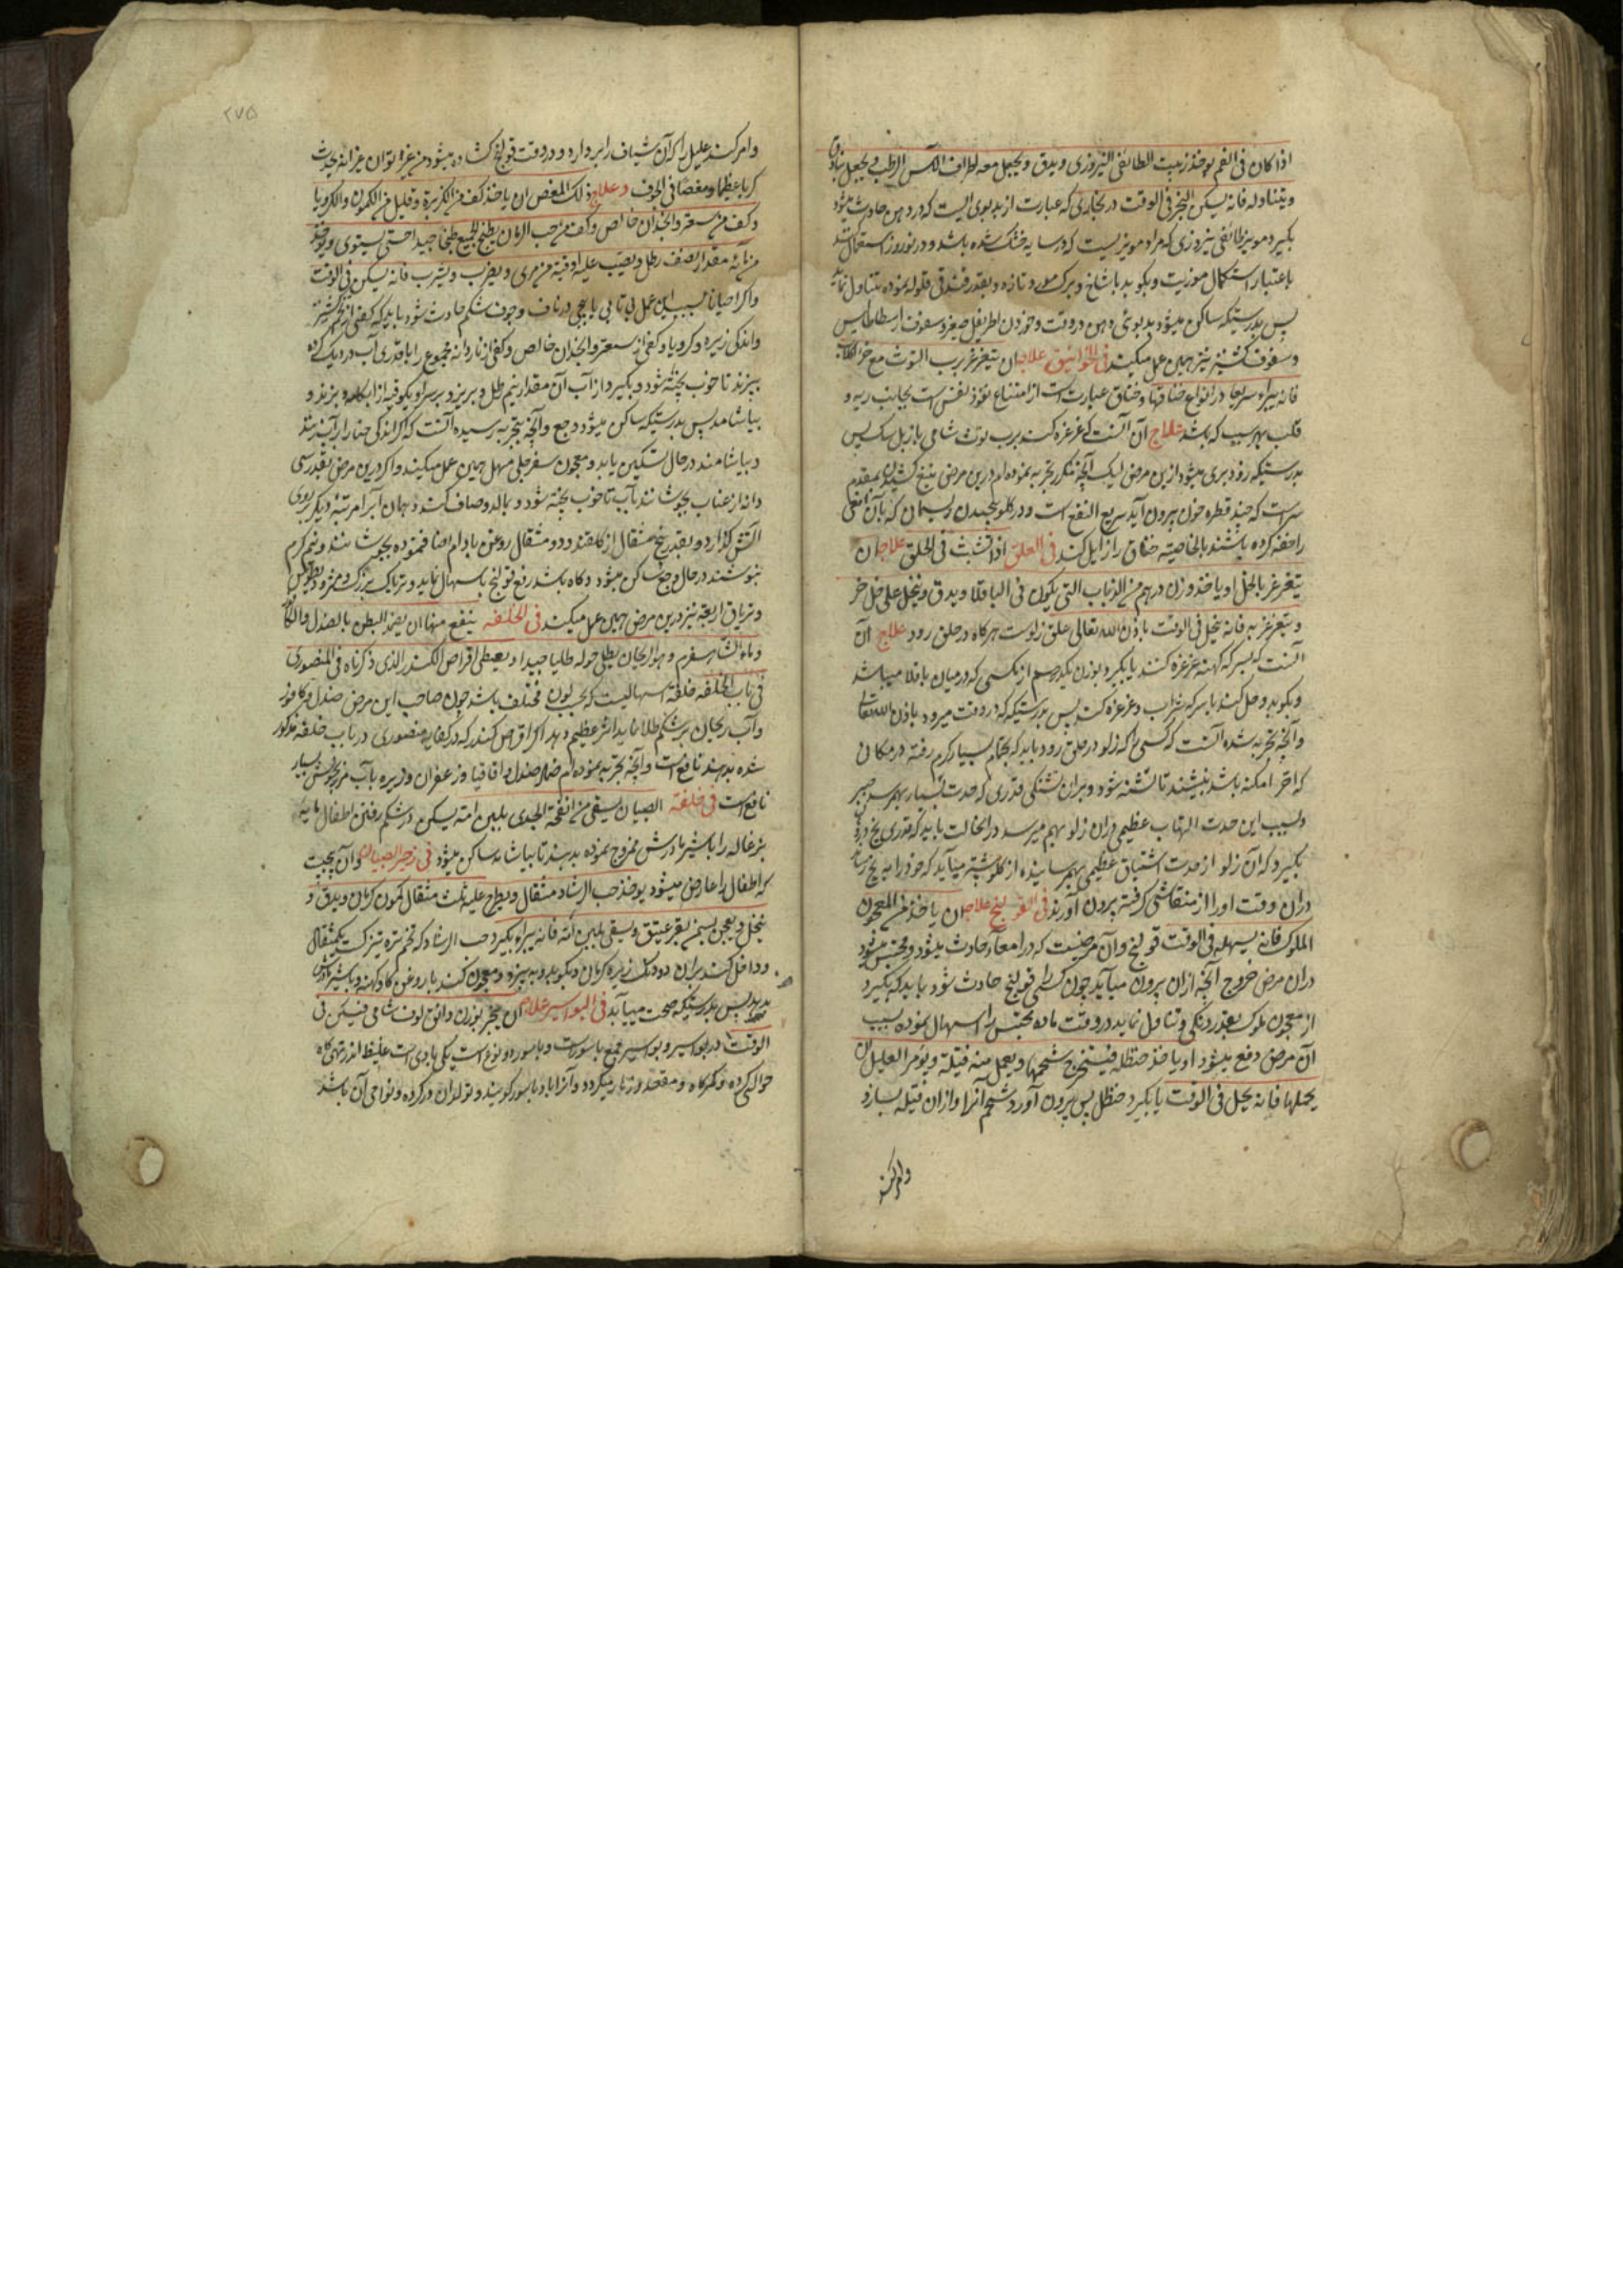 اذا کان فی الفم یوخذ زبیب الطائفی النیروزی و یدق و یجعل معه اطراف الآس الرطب و یجعل بنادق
و یتناوله فانه یسکن البخر فی الوقت در بخاری که عبارت از بدبوی الیست که در دهن حادث میشود
بکیرد مویز طائفی نیروزی که مراد مویزیست که در سایه خشک شده باشد و در نوروز استعمال
باعتبار استکمال موزیت و بکوبد باشاخ و برک مورد تازه و بقدر فندقی غلوله نموده تناول نماید
پس بدرستیکه ساکن میشود بدبوئی دهن در وقت و خوردن اطریفل صغیر و سفوف ارسطاطالیس
و سفوف کشنیز نیز همین عمل میکند فی الخوانیق علاجه ان یتغرغر برب التوث مع خرء الکلاب
فانه یبراء سریعا در انواع خناقها و خناق عبارت است از امتناع نفوذ نفس است بجانب ریه و
قلب بهر سبب که باشد علاج آن آنست که غرغره کند برب توث شامی با زبل سک پس
بدرستیکه زود بری میشود ازین مرض لیک آنچه مکرر تجربه نموده ام درین مرض تیغ کشیدن بمقدم
سر است که چند قطره خون بیرون آید سریع النفع است و در کلو پیچیدن ریسمان که بآن افعی
را خفه کرده باشند بالخاصیه خناق را زایل کند فی العلق اذا تشبث فی الحلق علاجه ان
یتغرغر بالخل او یاخذ وزن درهم من الذباب التی یکون فی الباقلا و یدق و ینخل علی خل خمر
و یتغرغر به فانه ینحل فی الوقت باذن الله تعالی علق زلوست هرکاه در حلق رود علاج آن
آنست که بسرکه کهنه غرغره کنند یا بکیرد بوزن یکدرهم از مکسی که در میان باقلا میباشد
و بکوبد و حل کند با سرکه شراب و غرغره کند پس بدرستیکه در وقت میرود باذن الله تعالی
و آنچه تجربه شده آنست که کسی را که زلو در حلق رود باید که بحمام بسیار کرم رفته در مکانی
که احر امکنه باشد بنشیند تا تشنه شود و بران تشنکی قدری که حدت بسیار بهم رسد صبر
و بسبب این حدت التهاب عظیمی دران زلو بهم میرسد در انحالت باید که قدری یخ در دهن
بکیرد که آن زلو از حدت اشتیاق عظیمی بهم رسانیده از کلو پشتر میآید که خود را به یخ رساند
دران وقت او را از منقاشی کرفته بیرون آورند فی القولنج علاجه ان یاخذ من المعجون
الملوک فانه یسهله فی الوقت قولنج و آن مرضیست که در امعاء حادث میشود و محتبس میشود
دران مرض خروج آنچه ازان بیرون میآید چون کسی را قولنج حادث شود باید که بکیرد
از معجون ملوک بقدر درنکی و تناول نماید در وقت ماده محتبس را اسهال نموده بسبب
آن مرض دفع میشود او یاخذ حنظله فیستخرج شحمها و یعمل منه فتیلة و یومر العلیل ان
یحملها فانه یحل فی الوقت یا بکیرد حنظل پس بیرون آورد شحم آنرا و ازان فتیله بسازد
وامر کند
۲۷۵
وامر کند علیل را که آن شیاف را بردارد و در وقت قولنج کشاده میشود من غیر توان غیر انه یحدث
کربا عظیما و مغصا فی الجوف و علاج ذلک المغص ان یاخذ کف من الکزبرة و قلیل من الکمون و الکرویا
و کف من سعتر و انجدان خالص و کف من حب الرمان یطبخ الجمیع طبخا جیدا حتی یستوی و یوخذ
من مائه مقدار نصف رطل و یصب علیه اوقیة من مری و یضرب و یشرب فانه یسکن فی الوقت
و اکر احیانا بسبب این عمل بی تابی یا پیچی در ناف و جوف شکم حادث شود باید که کفی از تخم کشنیز
و اندکی زیره و کرویا و کفی از سعتر و انجدان خالص و کفی از ناردانه مجموع را با قدری آب در دیک کرده
بپزند تا خوب پخته شود و بکیرد از آب آن مقدار نیم رطل و بریزد بر سر او یکوقیه از ابکامه و بزند و
بیاشامد پس بدرستیکه ساکن میشود وجع و آنچه بتجربه رسیده آنست که اکر اندکی خیار را بآب
و بیاشامند در حال تسکین یابد و معجون سفرجلی مسهل همین عمل میکنند و اکر درین مرض بقدر سی
دانه از عناب بجوشانند بآب تا خوب پخته شود و بمالد و صاف کند و همان آب را مرتبه دیکر بروی
آتش کذارد و بقدر پنج مثقال از کلقند و دو مثقال روغن بادام اضافه نموده بجوشانند و نیم کرم
بنوشند در حال وجع ساکن میشود و کاه باشد رفع قولنج باسهال نماید و تریاک بزرک و مثرودیطوس
و تریاق اربعه نیز درین مرض همین عمل میکند فی الخلفه ینفع منها ان یضمد البطن بالصندل والکافور
و ماء الشاهسفرم و هو الریحان یطلی حوله طلیا جیدا و یعطی اقراص الکندر الذی ذکرناه فی المنصوری
فی باب الخلفه خلفه اسهالیست که بحسب لون مختلف باشد چون صاحب این مرض صندل و کافور
و آب ریحان بر شکم طلا نماید اثر عظیم دهد اکر اقراص کندر که در کفایه منصوری در باب خلفه مذکور
شده بدهند نافع است و آنچه تجربه نموده ام ضماد صندل و اقاقیا و زعفران و ذریره بآب مرزنجوش بسیار
نافع است فی خلفة الصبیان یسقی من انفحة الجدی بلبن امه یسکن در شکم رفتن اطفال مایه
بزغاله را با شیر مادرش ممزوج نموده بدهند تا بیاشامد ساکن میشود فی زحیر الصبیان و آن پیچیست
که اطفال را عارض میشود یوخذ حب الرشاد مثقال و یطرح علیه ثلث مثقال کمون کرمان و یدق و
ینخل و یعجن بسمن بقر عتیق و یسقی بلبن امه فانه یبراء بکیرد حب الرشاد که تخم تره تیزکست یکمثقال
و داخل کند بران دو دانک زیره کرمان و بکوبد و به بیزد و معجون کنند با روغن کاو کهنه و با شیر مادرش
بدهد پس بدرستیکه صحت مییابد فی البواسیر علاجه ان یبخر بوزن دانق لوف شامی فیسکن فی
الوقت در بواسیر و بواسیر جمع باسور است و باسور دو نوع است یکی بادی است غلیظ اندر تهی کاه
حوالی کرده و کمرکاه و مقعد و زهار میکردد و آنرا باد باسور کویند و تولد ان در کرده و نواحی آن باشد